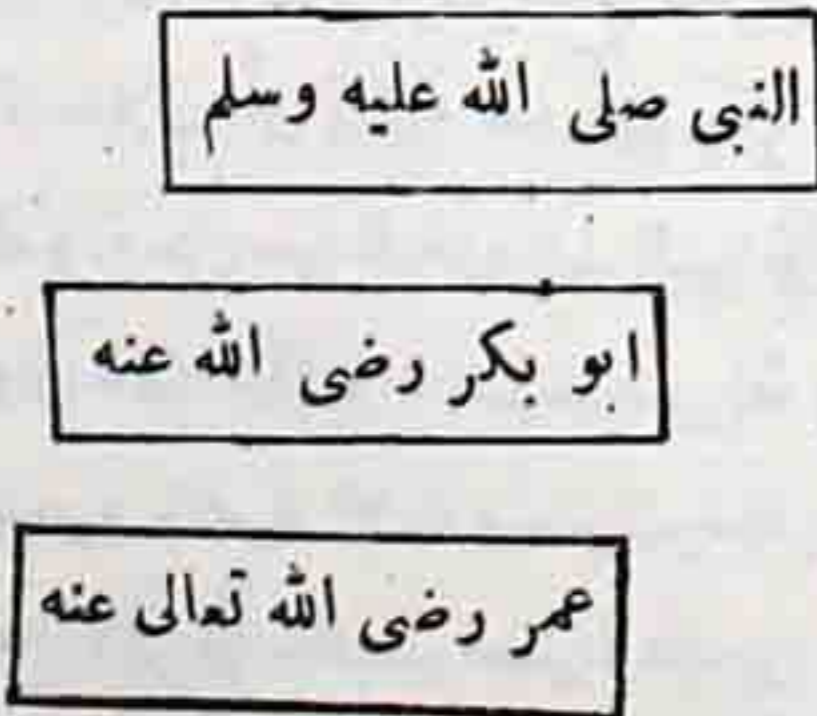 النبى صلى الله عليه وسلم
ابو بكر رضى الله عنه
عمر رضى الله تعالى عنه